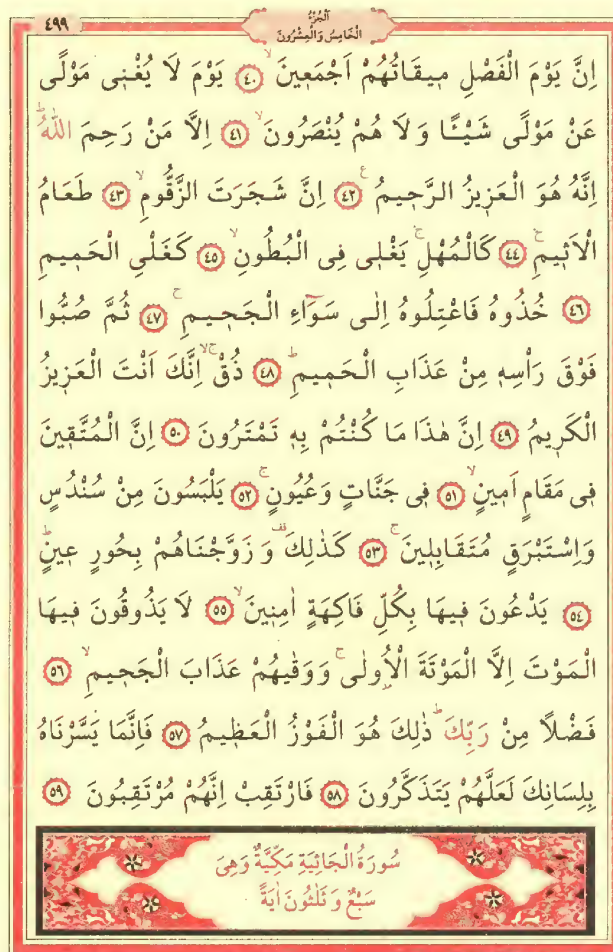 ٤٩٩
اَلْجُزْءُ
الْخَامِسُ وَالْعِشْرُونَ
اِنَّ يَوْمَ الْفَصْلِ مٖيقَاتُهُمْ اَجْمَعٖينَۙ ﴿٤٠﴾ يَوْمَ لَا يُغْنٖى مَوْلًى
عَنْ مَوْلًى شَيْـًٔا وَلَا هُمْ يُنْصَرُونَۙ ﴿٤١﴾ اِلَّا مَنْ رَحِمَ اللّٰهُؕ
اِنَّهُ هُوَ الْعَزٖيزُ الرَّحٖيمُࣖ ﴿٤٢﴾ اِنَّ شَجَرَتَ الزَّقُّومِۙ ﴿٤٣﴾ طَعَامُ
الْاَثٖيمِۚ ﴿٤٤﴾ كَالْمُهْلِۚ يَغْلٖى فِى الْبُطُونِۙ ﴿٤٥﴾ كَغَلْىِ الْحَمٖيمِ
﴿٤٦﴾ خُذُوهُ فَاعْتِلُوهُ اِلٰى سَوَٓاءِ الْجَحٖيمِۚ ﴿٤٧﴾ ثُمَّ صُبُّوا
فَوْقَ رَأْسِهٖ مِنْ عَذَابِ الْحَمٖيمِؕ ﴿٤٨﴾ ذُقْۚۙ اِنَّكَ اَنْتَ الْعَزٖيزُ
الْكَرٖيمُ ﴿٤٩﴾ اِنَّ هٰذَا مَا كُنْتُمْ بِهٖ تَمْتَرُونَ ﴿٥٠﴾ اِنَّ الْمُتَّقٖينَ
فٖى مَقَامٍ اَمٖينٍۙ ﴿٥١﴾ فٖى جَنَّاتٍ وَعُيُونٍۚ ﴿٥٢﴾ يَلْبَسُونَ مِنْ سُنْدُسٍ
وَاِسْتَبْرَقٍ مُتَقَابِلٖينَۚ ﴿٥٣﴾ كَذٰلِكَ۠ وَزَوَّجْنَاهُمْ بِحُورٍ عٖينٍؕ
﴿٥٤﴾ يَدْعُونَ فٖيهَا بِكُلِّ فَاكِهَةٍ اٰمِنٖينَۙ ﴿٥٥﴾ لَا يَذُوقُونَ فٖيهَا
الْمَوْتَ اِلَّا الْمَوْتَةَ الْاُولٰىۚ وَوَقٰيهُمْ عَذَابَ الْجَحٖيمِۙ ﴿٥٦﴾
فَضْلًا مِنْ رَبِّكَؕ ذٰلِكَ هُوَ الْفَوْزُ الْعَظٖيمُ ﴿٥٧﴾ فَاِنَّمَا يَسَّرْنَاهُ
بِلِسَانِكَ لَعَلَّهُمْ يَتَذَكَّرُونَ ﴿٥٨﴾ فَارْتَقِبْ اِنَّهُمْ مُرْتَقِبُونَ ﴿٥٩﴾
سُورَةُ الْجَاثِيَةِ مَكِّيَّةٌ وَهِىَ
سَبْعٌ وَثَلٰثُونَ اٰيَةً